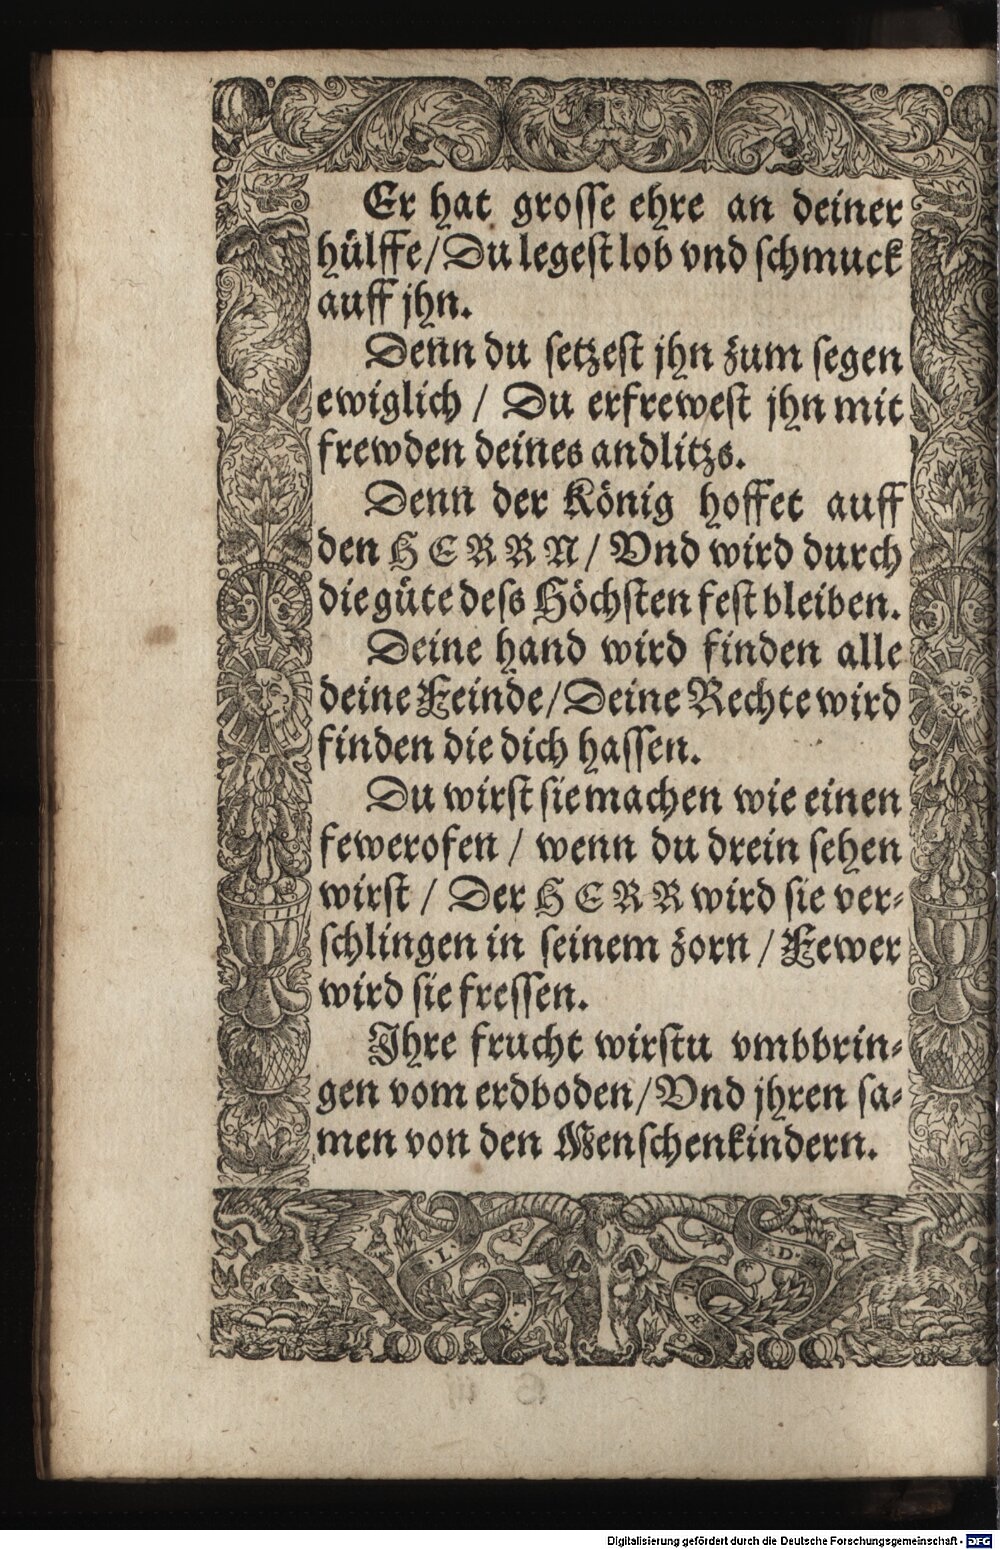 Er hat grosse ehre an deiner
hülffe/Du legest lob vnd schmuck
auff jhn.
Denn du setzest jhn zum segen
ewiglich / Du erfrewest jhn mit
frewden deines andlitzs.
Denn der König hoffet auff
den HERRN/Vnd wird durch
die güte dess Höchsten fest bleiben.
Deine hand wird finden alle
deine Feinde/Deine Rechte wird
finden die dich hassen.
Du wirst sie machen wie einen
fewerofen / wenn du drein sehen
wirst / Der HERR wird sie ver-
schlingen in seinem zorn / Fewer
wird sie fressen.
Ihre frucht wirstu vmbbrin-
gen vom erdboden/Vnd jhren sa-
men von den Menschenkindern.
Digitalisierung gefördert durch die Deutsche Forschungsgemeinschaft - DFG